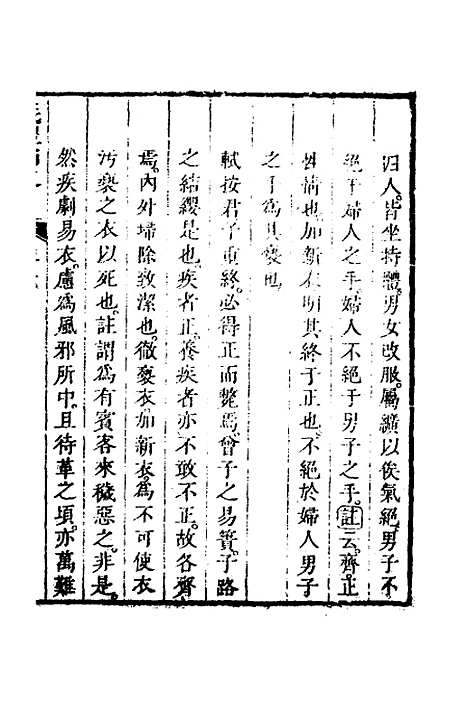 婦人皆坐持體。男女改服。屬纊以俟氣絕。男子不
絕于婦人之手。婦人不絕于男子之手。註云。齊正
情也。加新衣明其終于正也。不絕於婦人男子
之手為其褻也
軾按君子重終。必得正而斃焉。曾子之易簀。子路
之結纓是也。疾者正。養疾者亦不敢不正。故各齊
焉。內外埽除致潔也。徹褻衣加新衣。為不可使衣
污褻之衣以死也。註謂為有賓客來穢惡之。非是。
然疾劇易衣。慮為風邪所中。且待革之頃。亦萬難